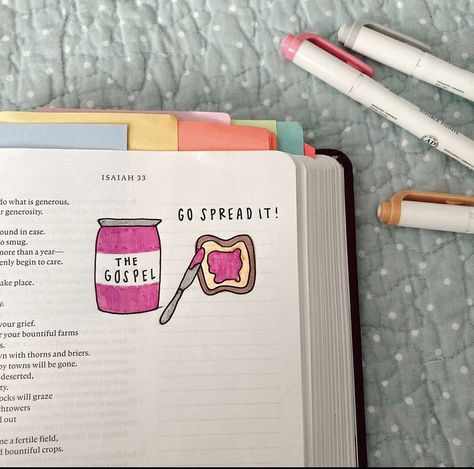 ISAIAH 33
do what is generous,
r generosity.
ound in ease.
o smug.
more than a year—
enly begin to care.
ake place.
y.
your grief.
r your bountiful farms
s.
wn with thorns and briers.
py towns will be gone.
deserted,
ity.
ocks will graze
chtowers
d out
me a fertile field,
d bountiful crops.
GO SPREAD IT!
THE
GOSPEL